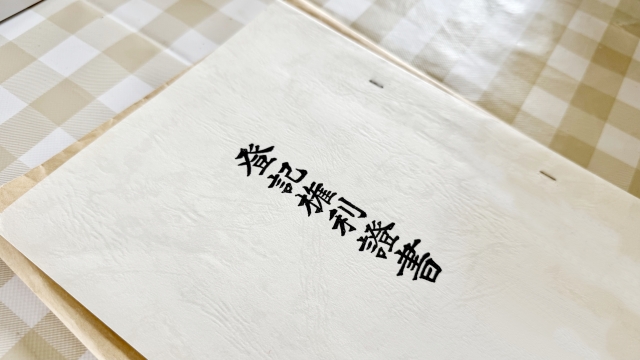 登記権利證書